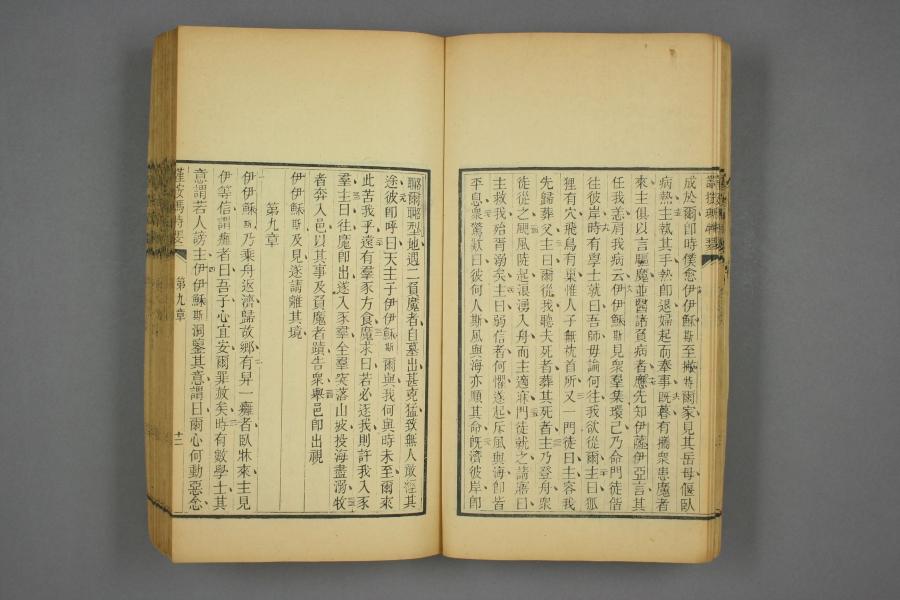 成於爾卽時僕愈伊伊穌斯至撇特爾家見其岳母偃臥
病熱主執其手熱卽退婦起而奉事旣暮有攜衆患魔者
來主俱以言驅魔並醫諸負病者應先知伊薩伊亞言其
任我恙肩我病云伊伊穌斯見衆羣集環己乃命門徒偕
往彼岸時有學士就曰吾師毋論何往我欲從爾主曰狐
狸有穴飛鳥有巢惟人子無枕首所又一門徒曰主容我
先歸葬父主曰爾從我聽夫死者葬其死者主乃登舟衆
徒從之颶風陡起浪湧入舟而主適寐門徒就之請寤曰
主救我殆胥溺矣主曰弱信者何懼遂起斥風與海卽皆
平息衆驚歎曰彼何人斯風與海亦順其命旣濟彼岸卽
耶爾耶型地遇二負魔者自墓出甚克猛致無人敢經其
途彼卽呼曰天主子伊伊穌斯爾與我何與時未至爾來
此苦我乎遠有羣豕方食魔求曰若必逐我則許我入豕
羣主曰往魔卽出遂入豕羣全羣突落山坡投海盡溺牧
者奔入邑以其事及負魔者蹟告衆舉邑卽出視
伊伊穌斯及見遂請離其境
第九章
伊伊穌斯乃乘舟返濟歸故鄉有舁一癱者臥牀來主見
伊等信謂癱者曰吾子心宜安爾罪赦矣時有數學士其
意謂若人謗主伊伊穌斯洞鑒其意謂曰爾心何動惡念
第九章
十二